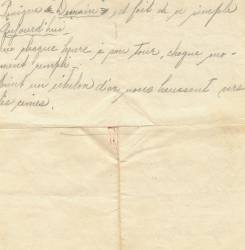 Puisque « Demain » est fait de ce simple
Aujourd'hui.
Que chaque heure à son tour, chaque mo-
ment rempli
Soient un échelon d'or nous haussant vers
les cimes.